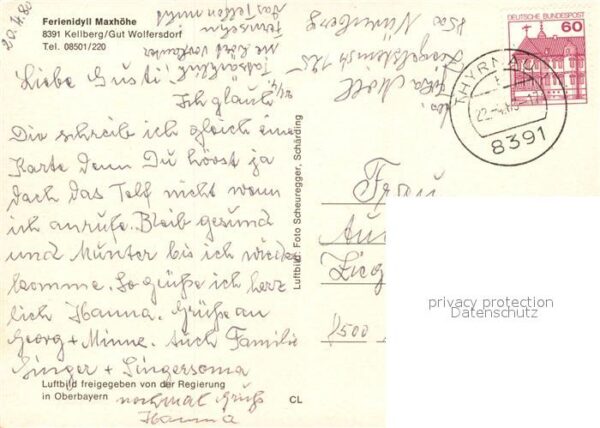 20.4.80
Ferienidyll Maxhöhe
8391 Kellberg/Gut Wolfersdorf
Tel. 08501/220
Liebe Gusti!
Ich glaub
Dir schreib ich gleich eine
Karte denn Du hörst ja
doch das Telf nicht wenn
ich anrufe. Bleib gesund
und Munter bis ich wieder
komme. So grüße ich herz
lich Hanna. Grüße an
Georg + Minne. Auch Familie
Singer + Singersoma
nochmal Gruß
Hanna
Luftbild freigegeben von der Regierung
in Oberbayern
CL
Luftbild: Foto Scheuregger, Schärding
Fernsehen
das Telefon nicht
8500 Nürnberg
DEUTSCHE BUNDESPOST
60
THYRNAU
8391
Frau
Au
Zieg
8500
privacy protection
Datenschutz